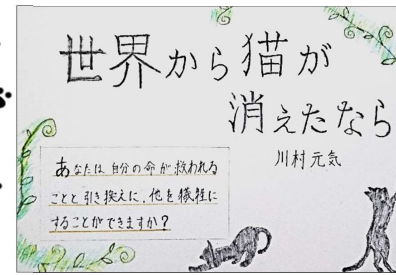 世界から猫が
消えたなら
川村元気
あなたは自分の命が救われる
ことと引き換えに、他を犠牲に
することができますか？